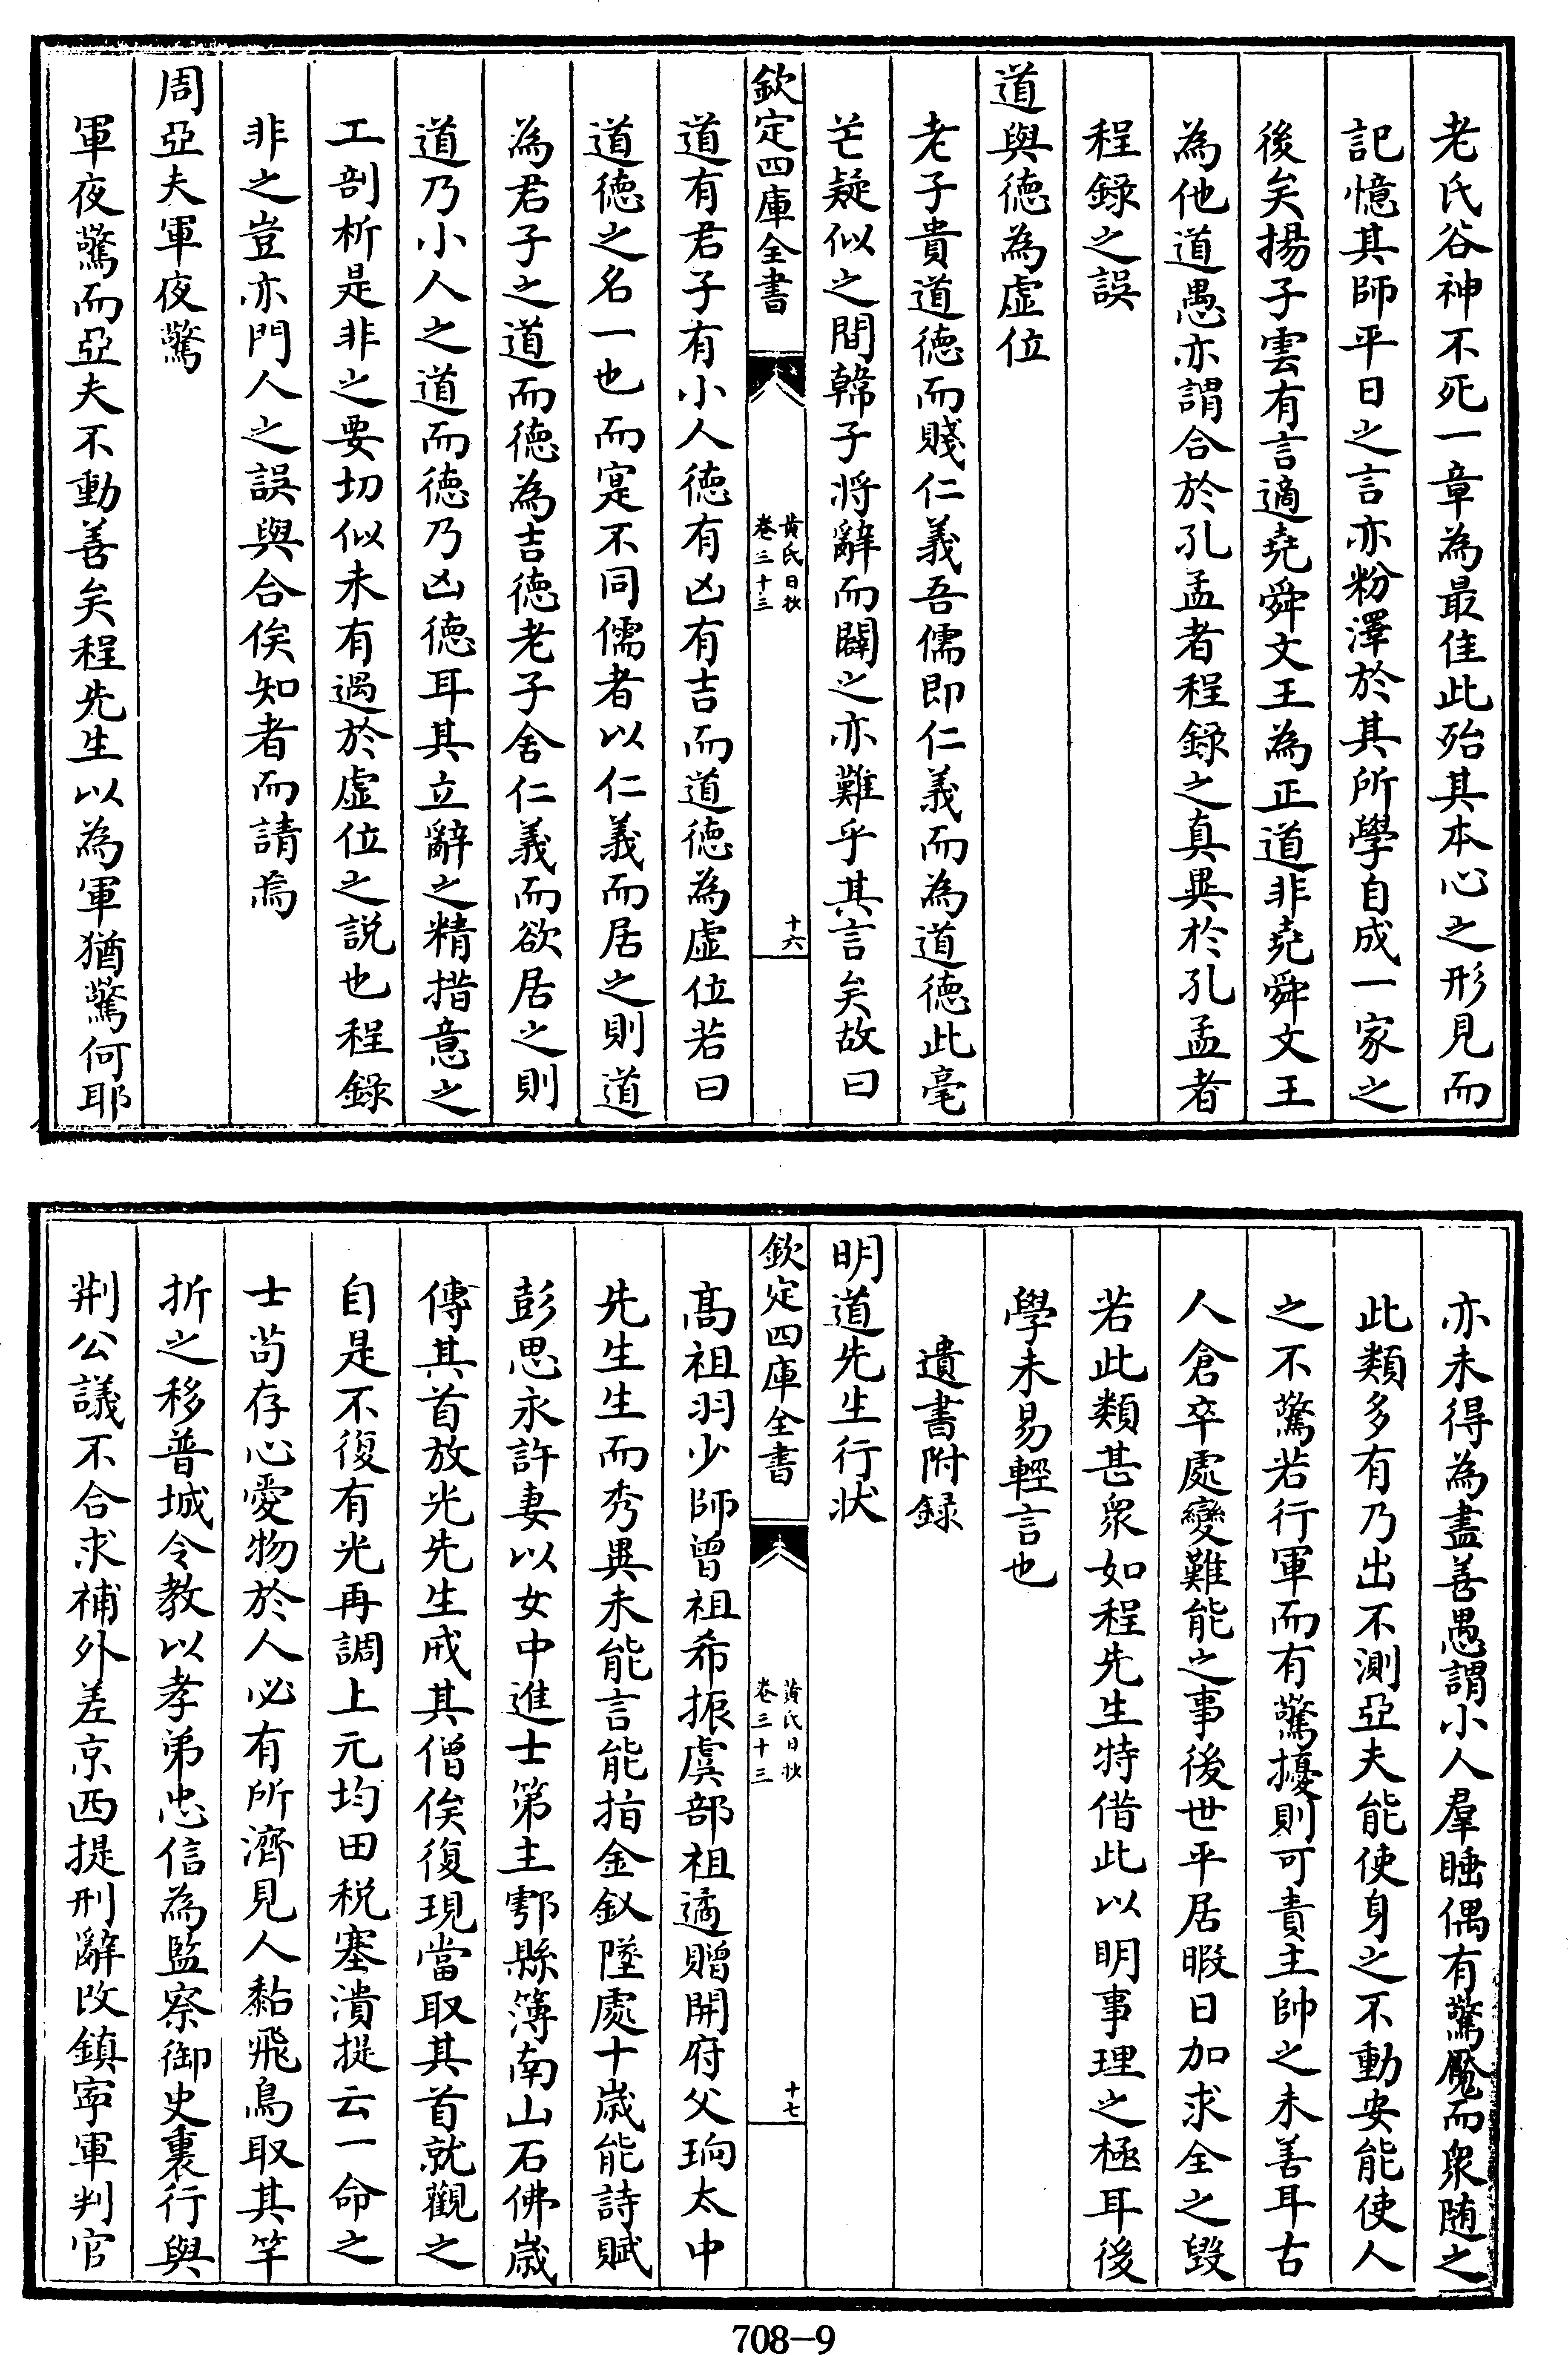 老氏谷神不死一章為最佳此殆其本心之形見而
記憶其師平日之言亦粉澤於其所學自成一家之
後矣揚子雲有言適堯舜文王為正道非堯舜文王
為他道愚亦謂合於孔孟者程錄之真異於孔孟者
程錄之誤
道與徳為虛位
老子貴道徳而賤仁義吾儒即仁義而為道徳此毫
芒疑似之間韓子將辭而闢之亦難乎其言矣故曰
欽定四庫全書
黃氏日抄
卷三十三
十六
道有君子有小人徳有凶有吉而道徳為虛位若曰
道徳之名一也而寔不同儒者以仁義而居之則道
為君子之道而徳為吉徳老子舍仁義而欲居之則
道乃小人之道而徳乃凶徳耳其立辭之精措意之
工剖析是非之要切似未有過於虛位之説也程錄
非之豈亦門人之誤與合俟知者而請焉
周亞夫軍夜驚
軍夜驚而亞夫不動善矣程先生以為軍猶驚何耶
亦未得為盡善愚謂小人羣睡偶有驚魘而衆随之
此類多有乃出不測亞夫能使身之不動安能使人
之不驚若行軍而有驚擾則可責主帥之未善耳古
人倉卒處變難能之事後世平居暇日加求全之毀
若此類甚衆如程先生特借此以明事理之極耳後
學未易輕言也
遺書附録
明道先生行状
欽定四庫全書
黃氏日抄
卷三十三
十七
髙祖羽少師曽祖希振虞部祖遹贈開府父珦太中
先生生而秀異未能言能指金釵墜處十嵗能詩賦
彭思永許妻以女中進士第主鄠縣簿南山石佛嵗
傳其首放光先生戒其僧俟復現當取其首就觀之
自是不復有光再調上元均田税塞潰堤云一命之
士茍存心愛物於人必有所濟見人黏飛鳥取其竿
折之移普城令教以孝弟忠信為監察御史裏行與
荆公議不合求補外差京西提刑辭改鎮寧軍判官
708—9